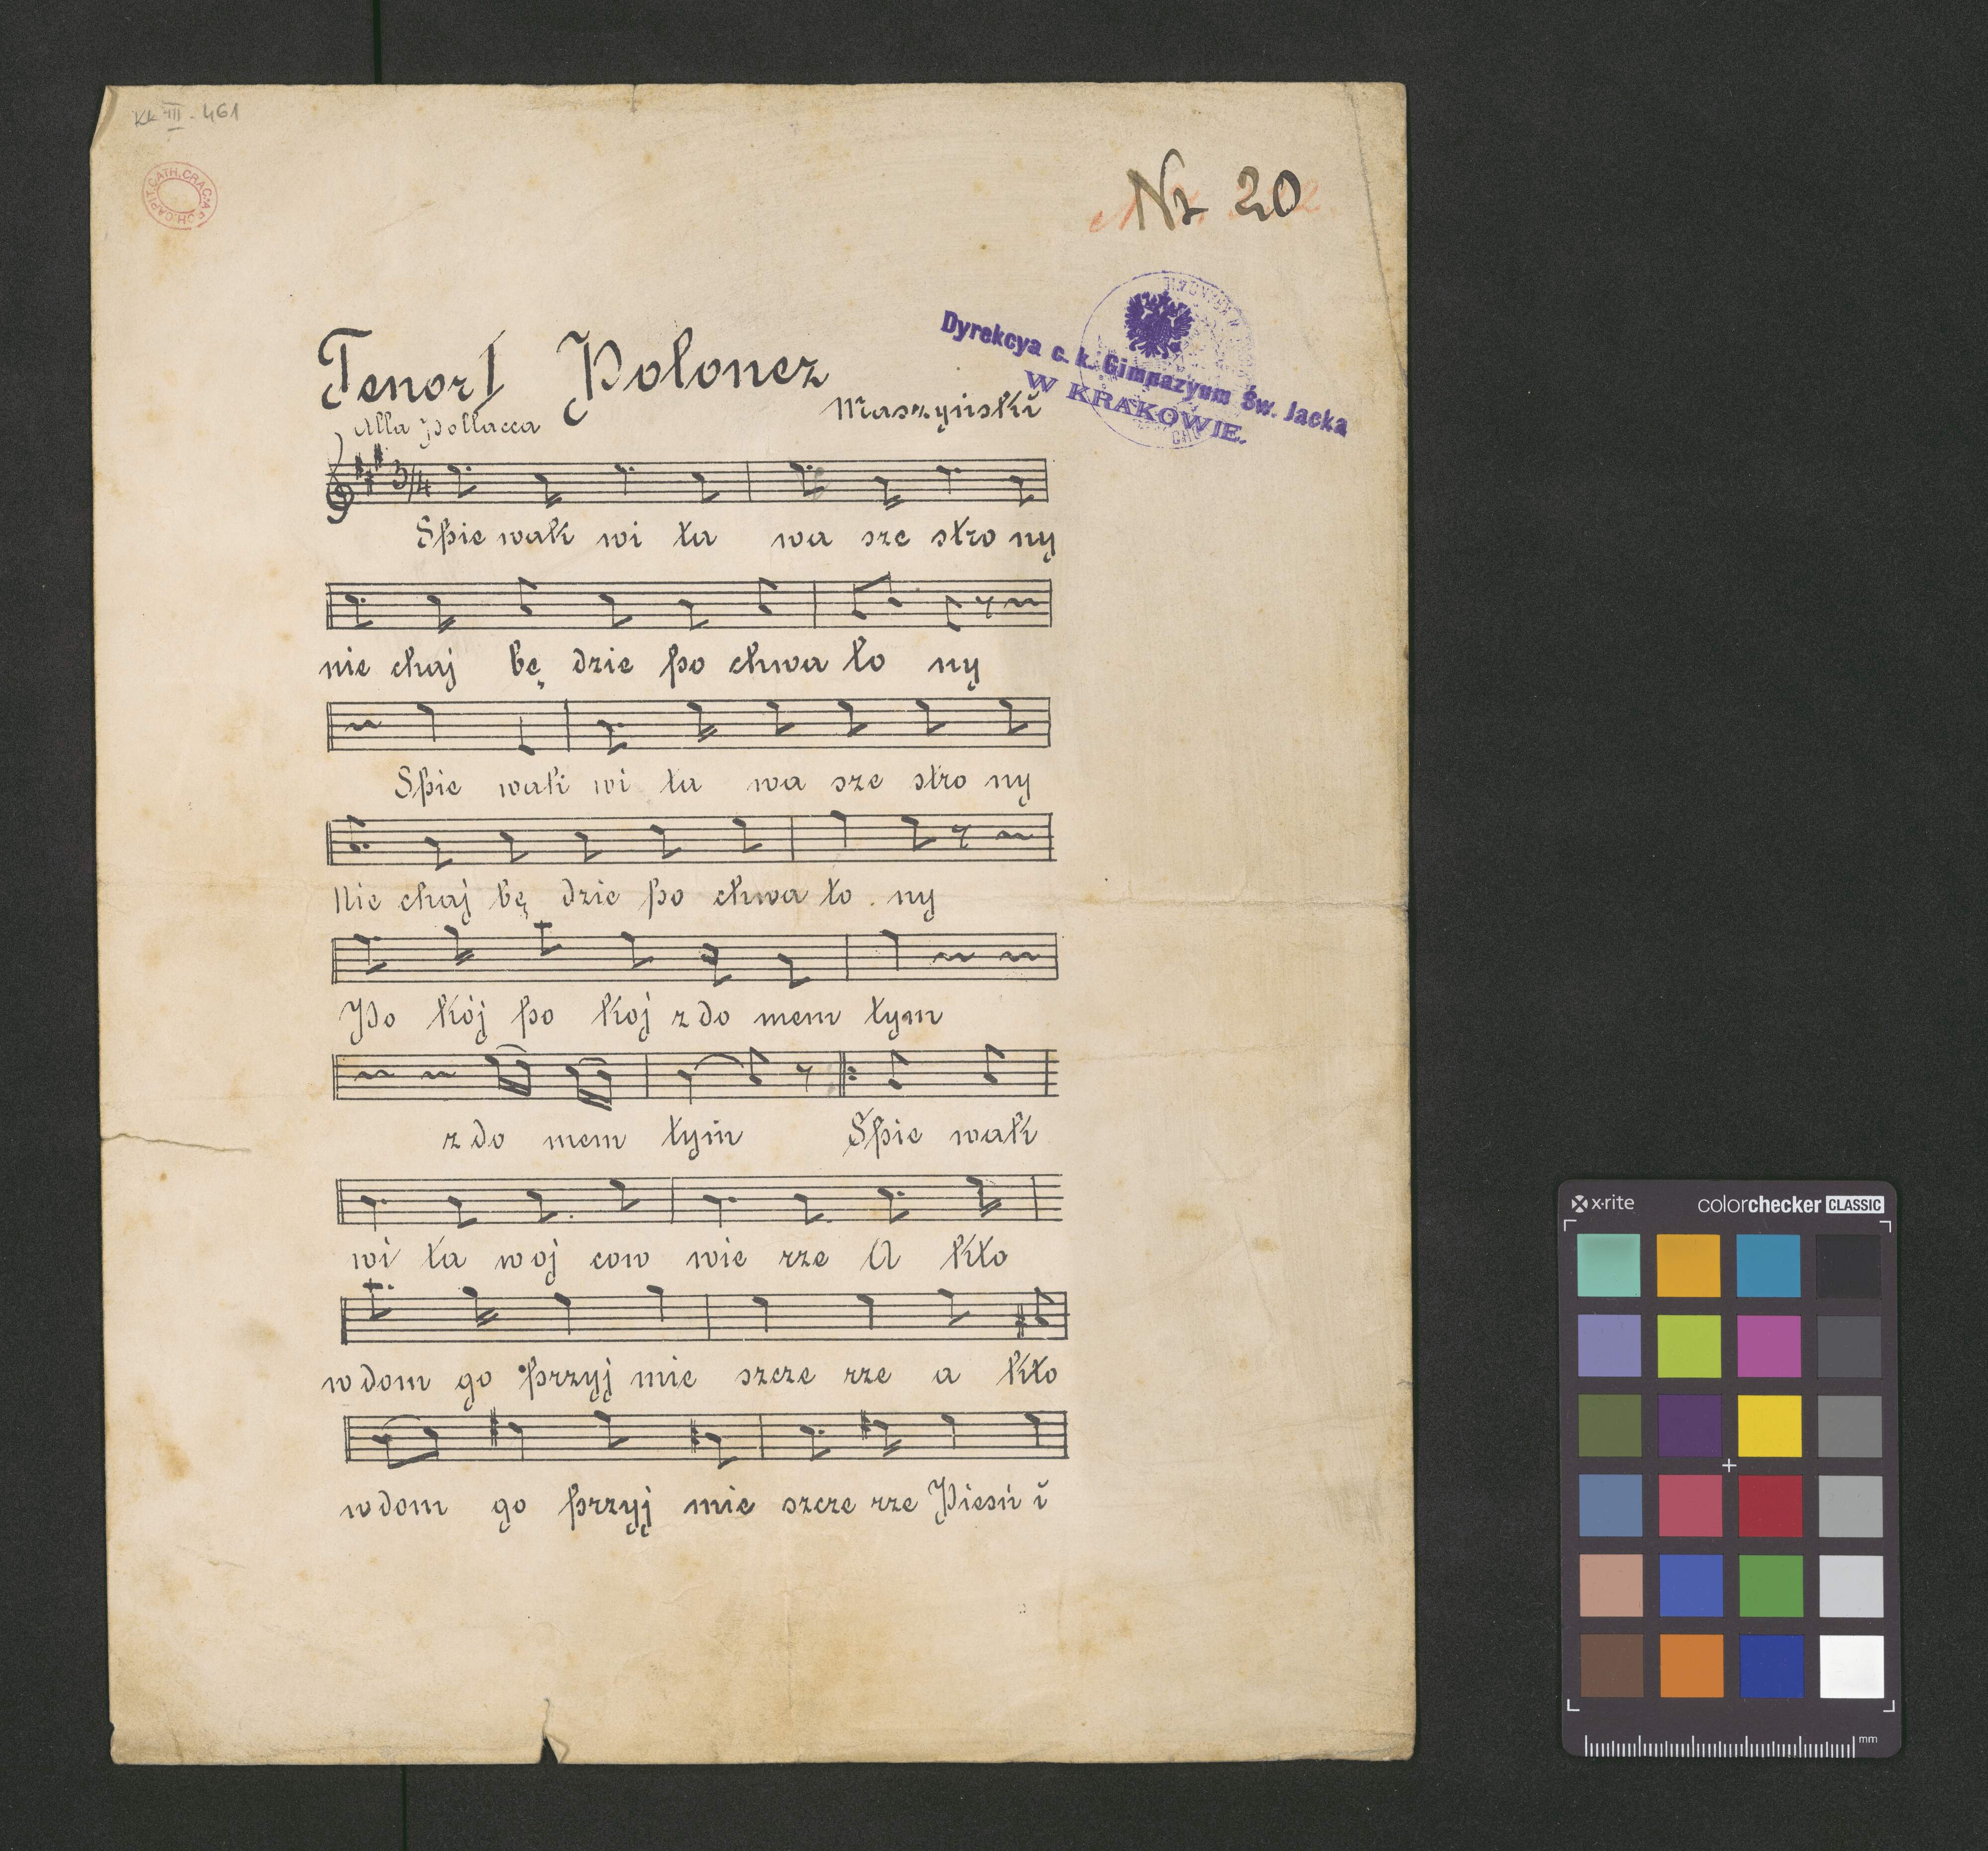 KK III. 461
ARCH. CAPIT. CATH. CRAC.
Nr 20
Dyrekcya c. k. Gimnazyum Św. Jacka
W KRAKOWIE.
Tenor I Polonez
Maszyński
Alla Pollacca
3/4
Spie wak wi ta wa sze stro ny
nie chaj bę dzie po chwa lo ny
Spie wak wi ta wa sze stro ny
Nie chaj bę dzie po chwa lo . ny
Po kój po koj z do mem tym
z do mem tym Śpie wak
wi ta woj cow wie rze A kto
w dom go przyj mie szcze rze a kto
w dom go przyj mie szcze rze Pieśń i
x·rite colorchecker CLASSIC
mm